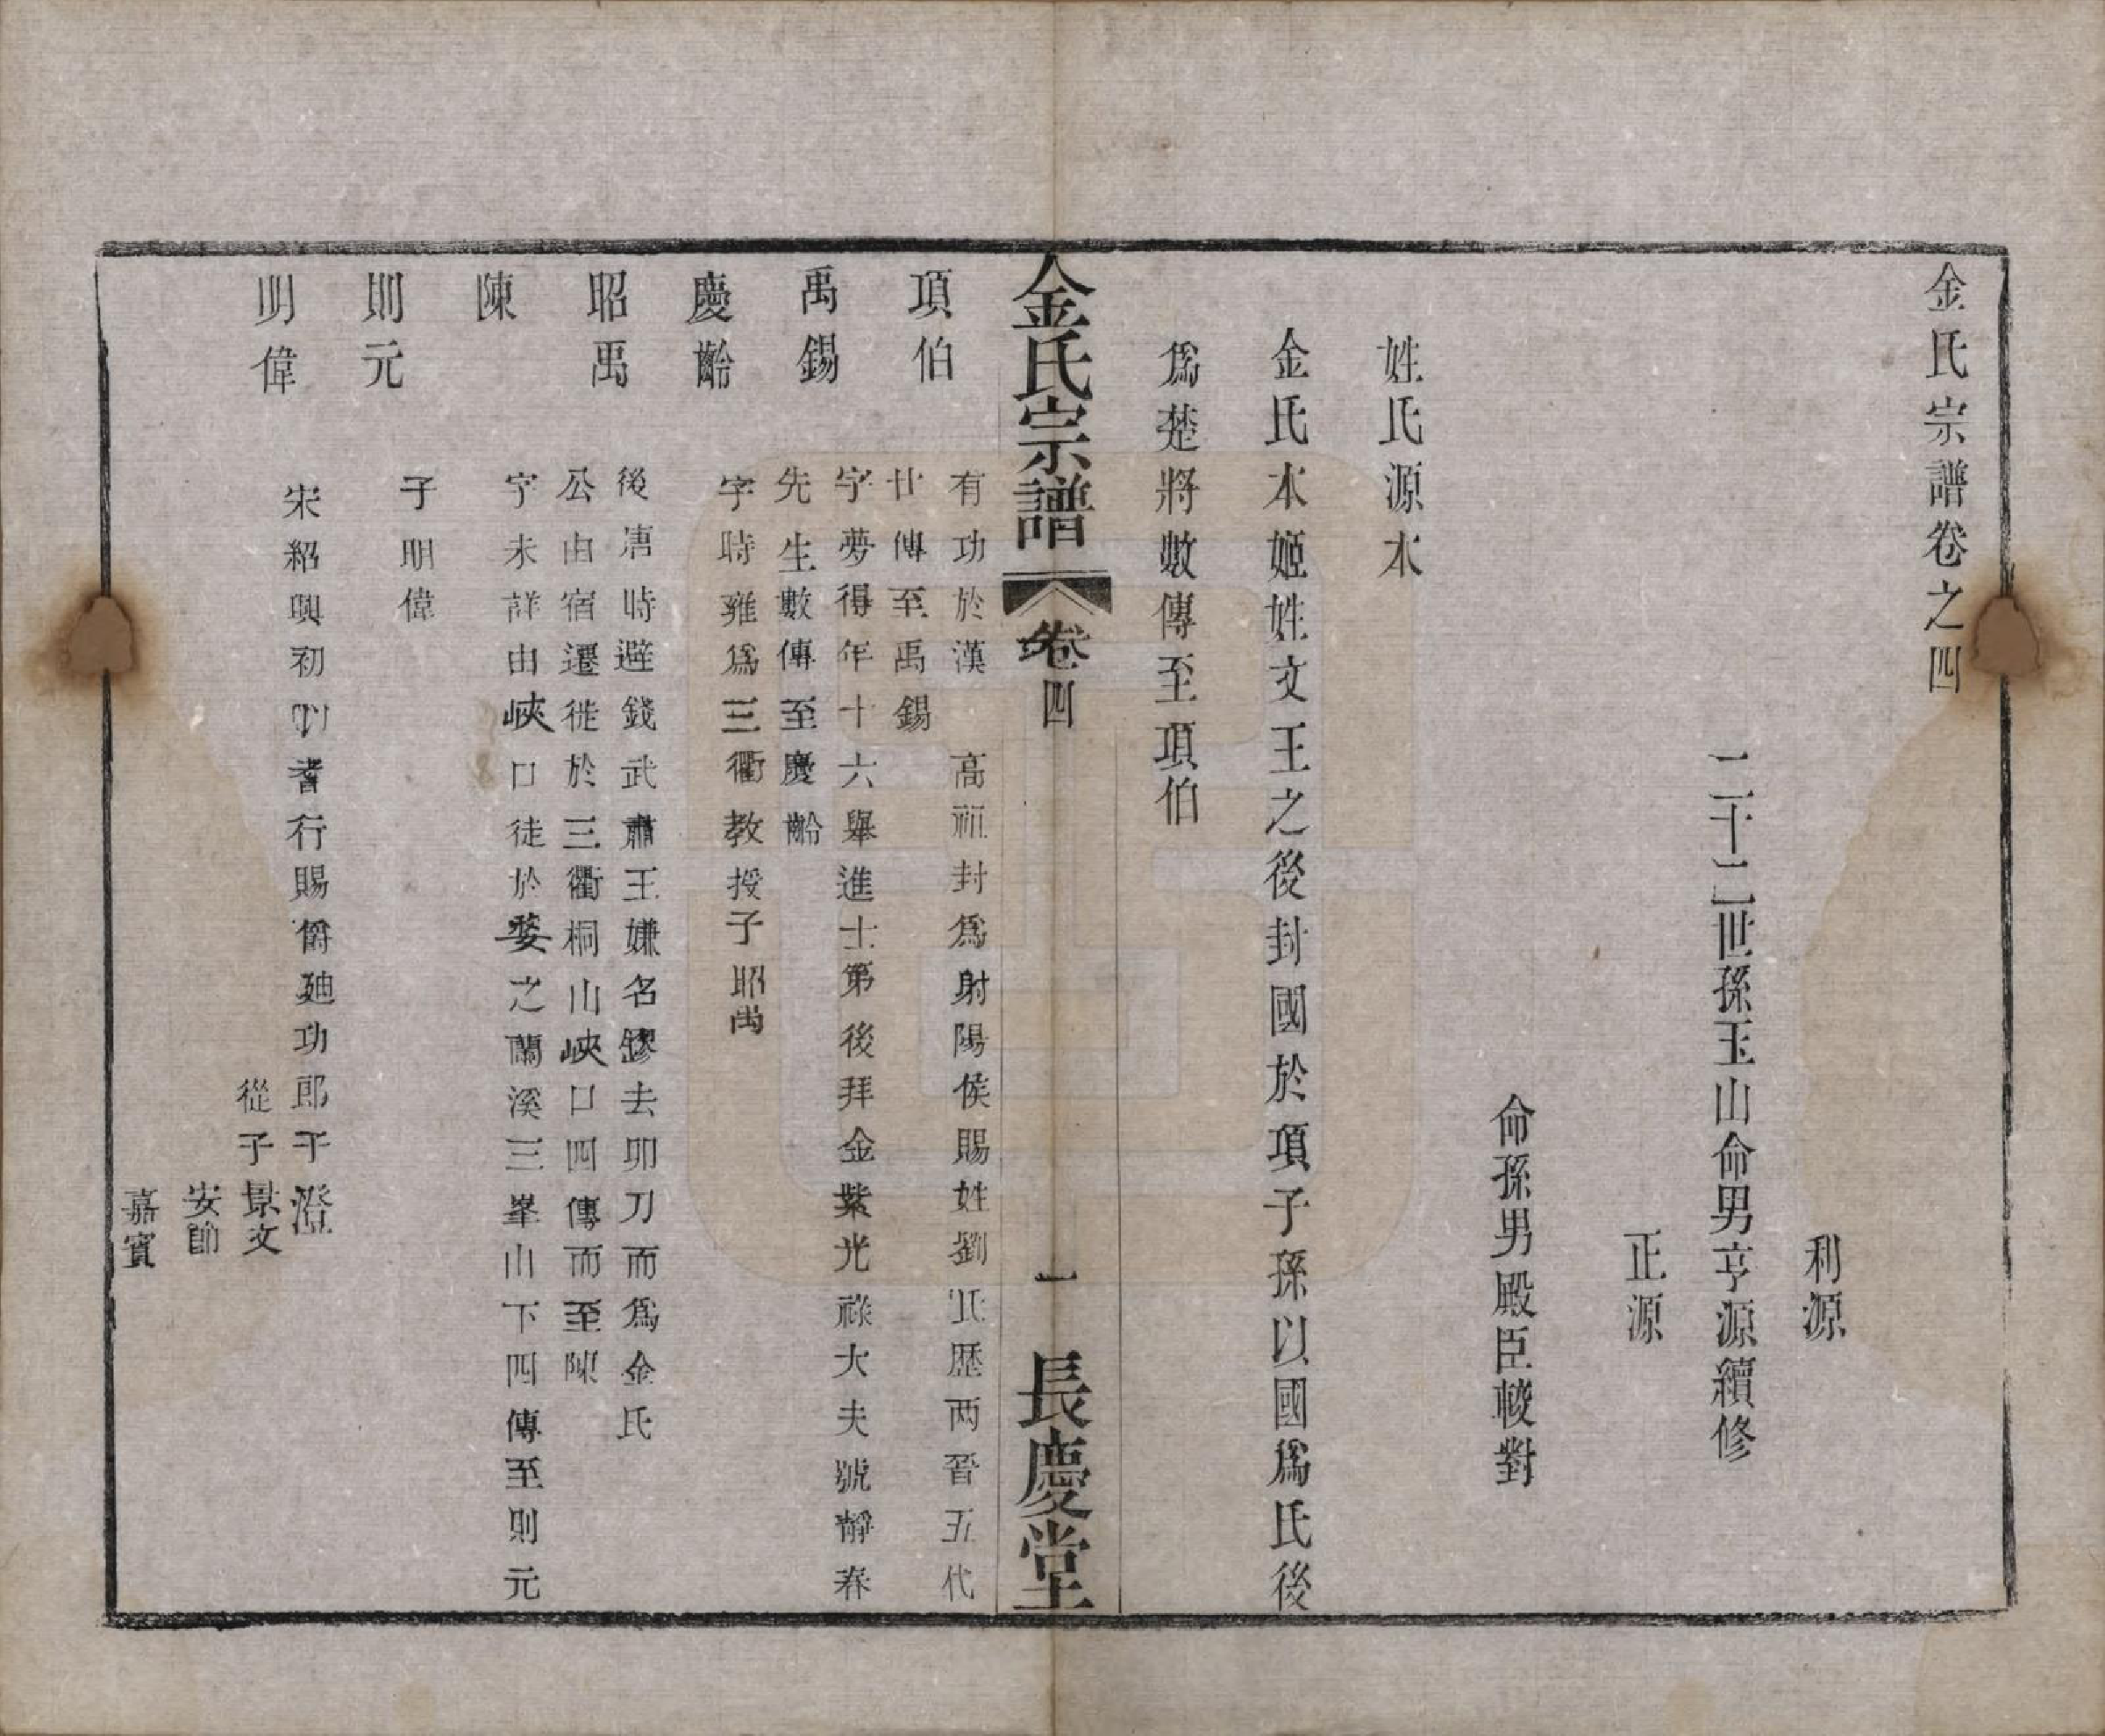 金氏宗譜卷之四
利源
二十二世孫玉山命男亨源續修
正源
命孫男殿臣較對
姓氏源本
金氏本姬姓文王之後封國於項子孫以國爲氏後
爲楚將數傳至項伯
金氏宗譜 卷四 一 長慶堂
項伯
有功於漢 高祖封爲射陽侯賜姓劉氏歷两晉五代
廿傳至禹錫
禹錫
字夢得年十六舉進士第後拜金紫光祿大夫號靜春
先生數傳至慶齡
慶齡
字時雍爲三衢教授子昭禹
昭禹
後唐時避錢武肅王嫌名鏐去卯刀而爲金氏
公由宿遷徙於三衢桐山峽口四傳而至陳
陳
字未詳由峽口徒於婺之蘭溪三峯山下四傳至則元
則元
子明偉
明偉
宋紹興初以耆行賜爵廸功郎子澄
從子景文
安節
嘉賓